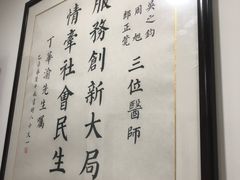 吳之鈞
周旭
三位醫師
服務創新大局
情牽社會民生
丁華渝先生囑